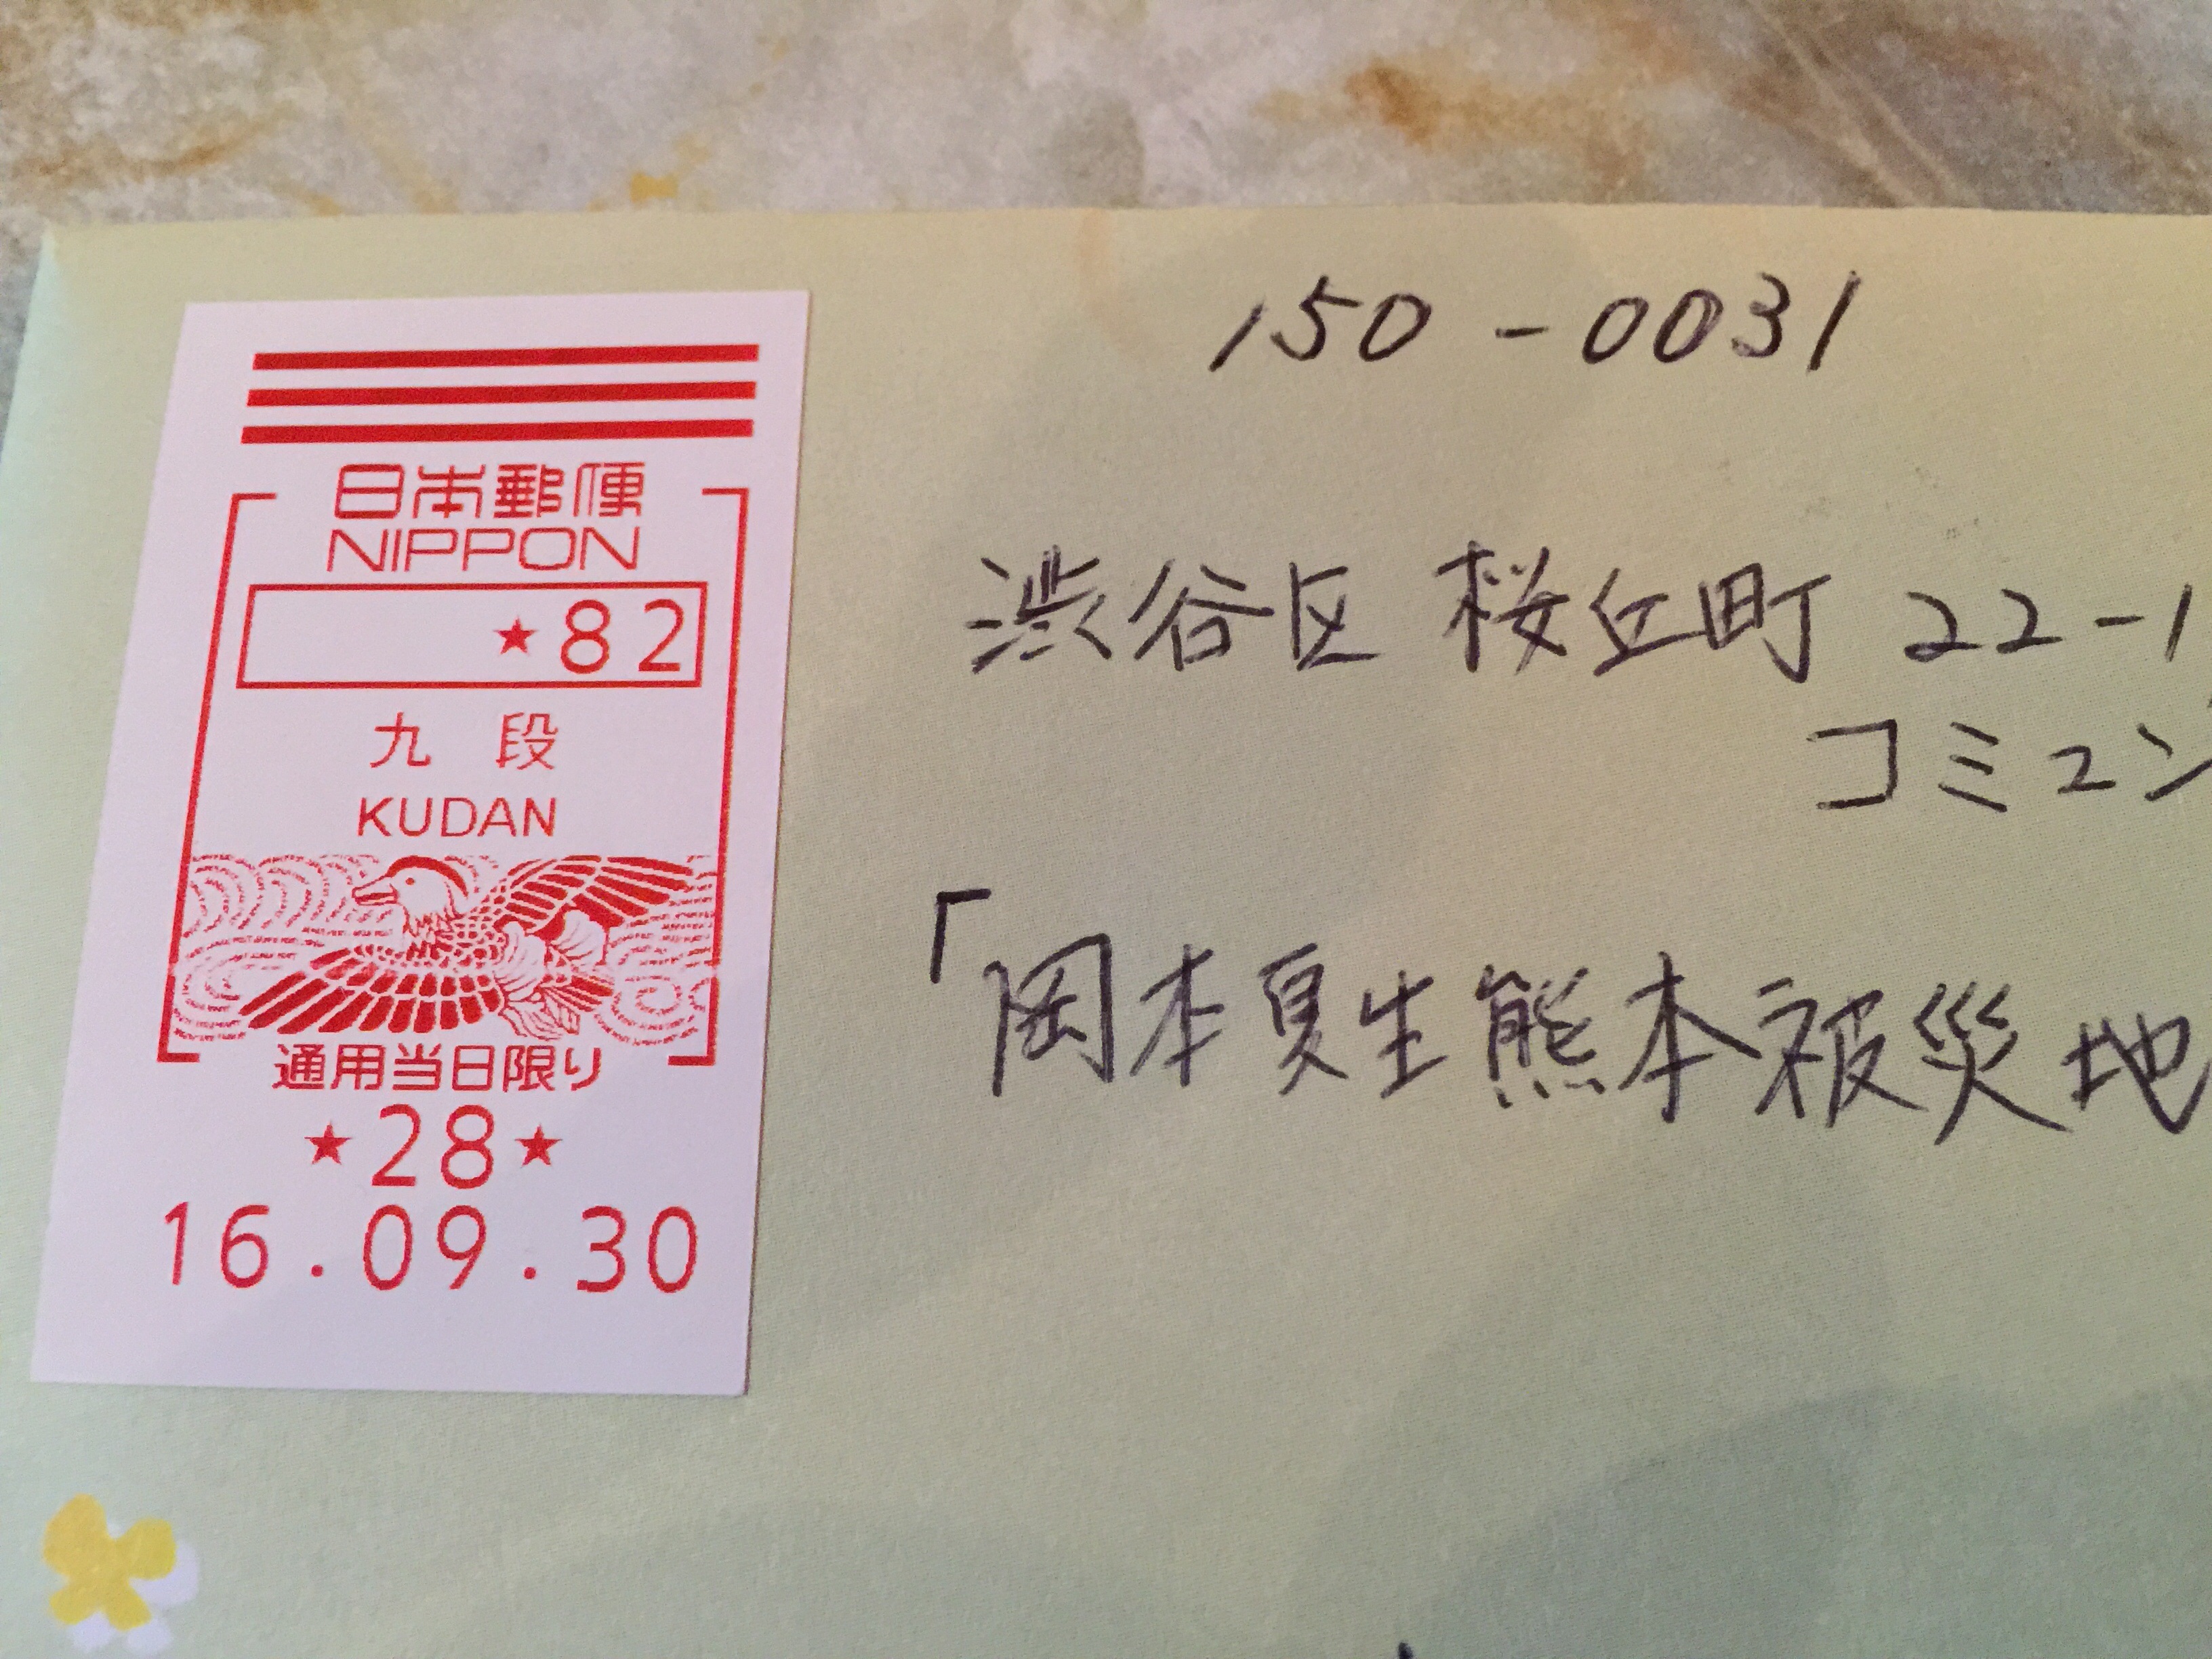 日本郵便
NIPPON
★82
九 段
KUDAN
通用当日限り
★28★
16.09.30
150-0031
渋谷区 桜丘町 22-1
コミュン
「岡本夏生熊本被災地